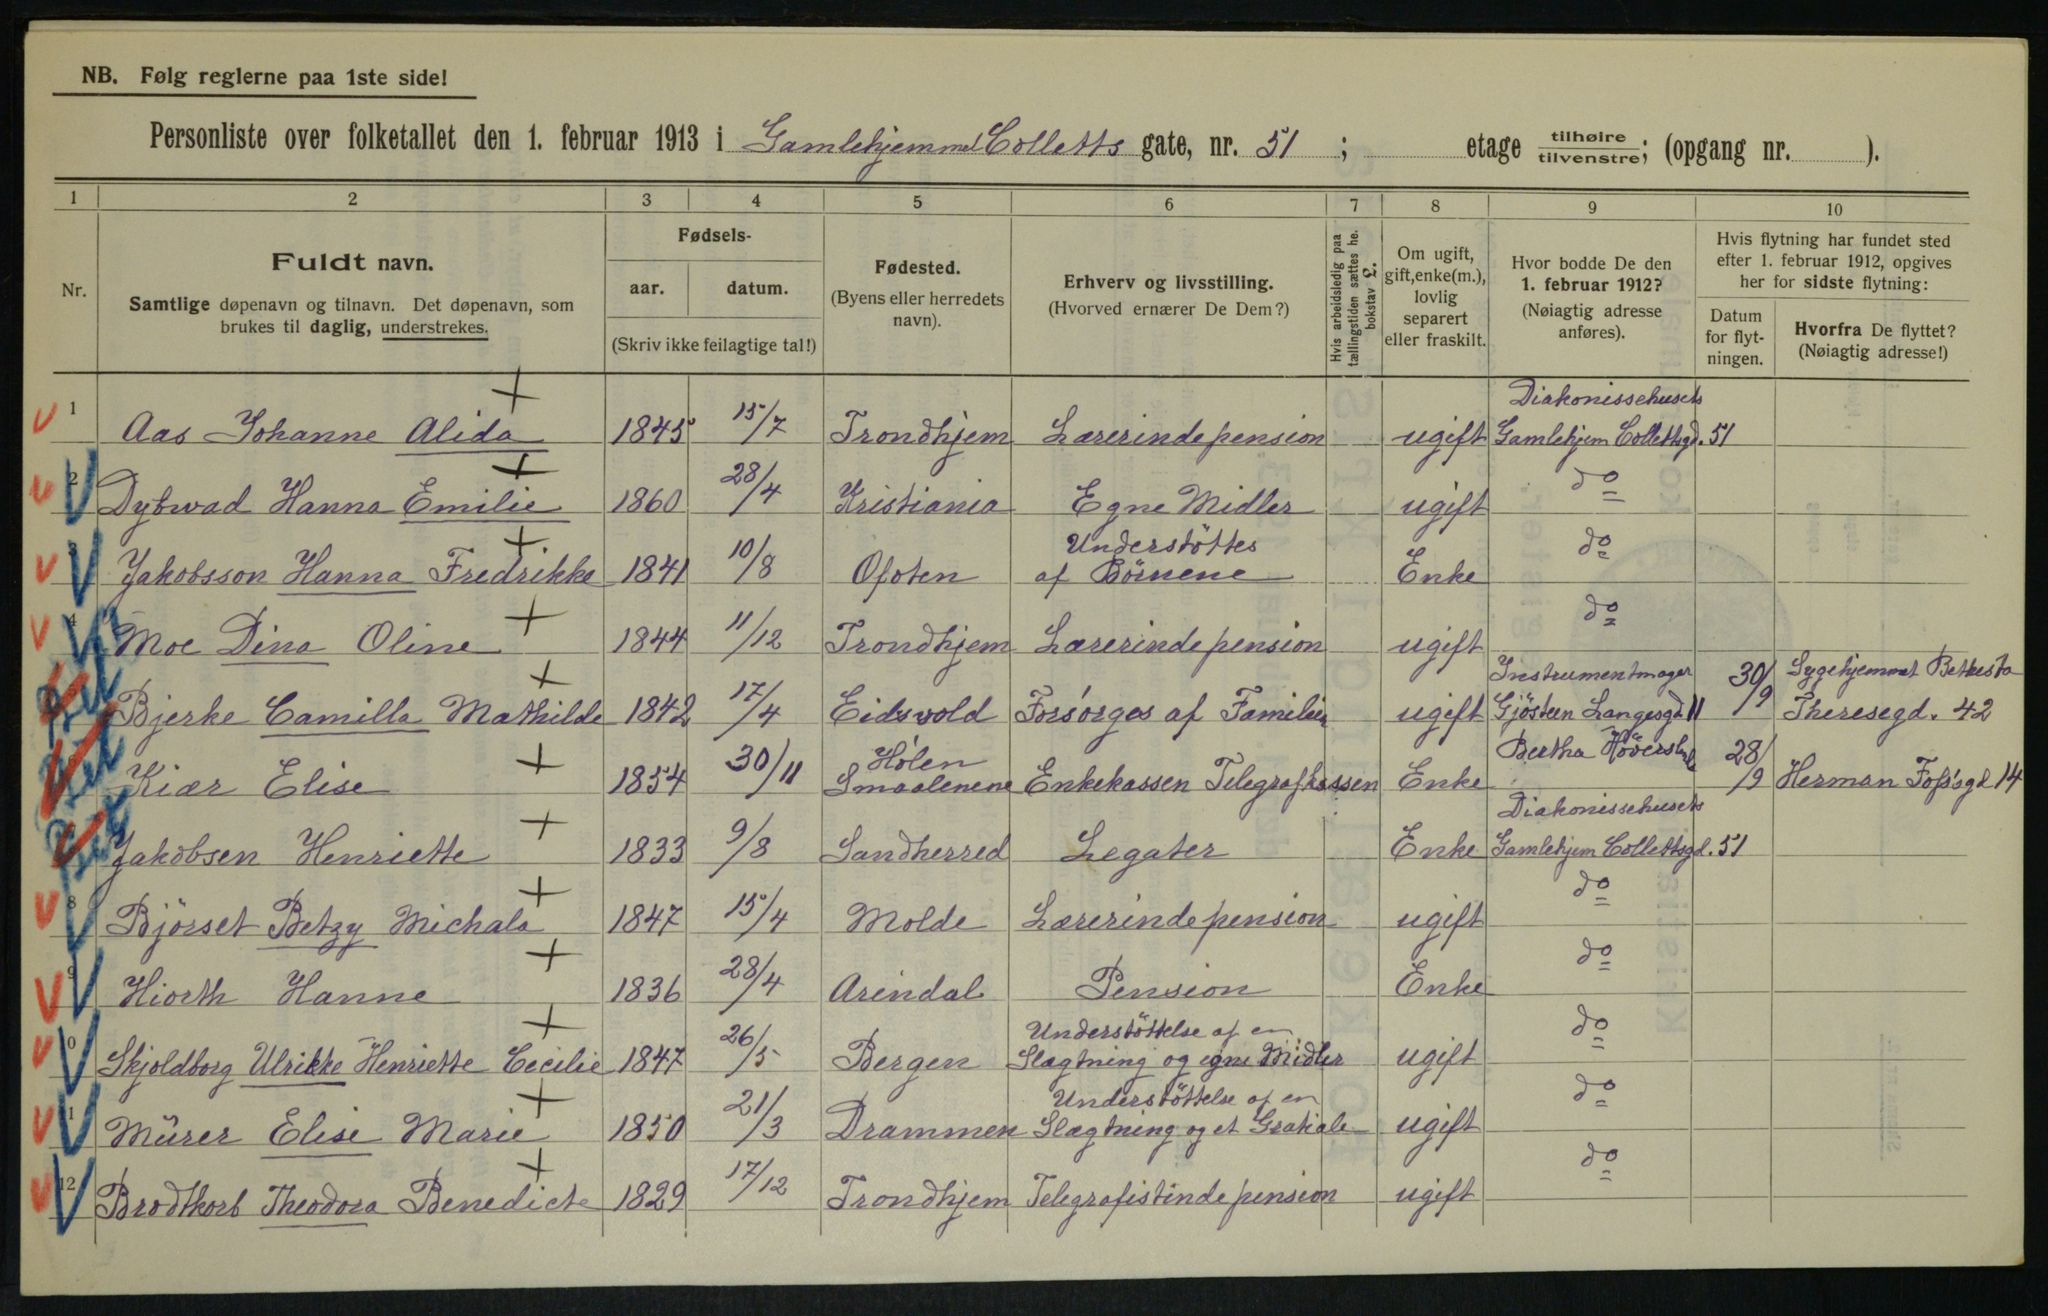 NB. Følg reglerne paa 1ste side!
Personliste over folketallet den 1. februar 1913 i Gamlehjemmet Colletts gate, nr. 51 ; etage tilhøire tilvenstre; (opgang nr. ).
1 2 3 4 5 6 7 8 9 10
Nr.
Fuldt navn.
Samtlige døpenavn og tilnavn. Det døpenavn, som
brukes til daglig, understrekes.
Fødsels-
aar. datum.
(Skriv ikke feilagtige tal!)
Fødested.
(Byens eller herredets
navn).
Erhverv og livsstilling.
(Hvorved ernærer De Dem?)
Hvis arbeidsledig paa
tællingstiden sættes he.
bokstav L.
Om ugift,
gift, enke(m.),
lovlig
separert
eller fraskilt.
Hvor bodde De den
1. februar 1912?
(Nøiagtig adresse
anføres).
Hvis flytning har fundet sted
efter 1. februar 1912, opgives
her for sidste flytning:
Datum
for flyt-
ningen.
Hvorfra De flyttet?
(Nøiagtig adresse!)
1 Aas Johanne Alida 1845 15/7 Trondhjem Lærerindepension ugift Diakonissehusets
Gamlehjem Collettsgd. 51
2 Dybwad Hanna Emilie 1860 28/4 Kristiania Egne Midler ugift do
3 Jakobsson Hanna Fredrikke 1841 10/8 Ofoten Understöttes
af Börnene Enke do
4 Moe Dina Oline 1844 11/12 Trondhjem Lærerindepension ugift do
Bjerke Camilla Mathilde 1842 17/4 Eidsvold Forsörges af Familien ugift Instrumentmager
Gjösteen Langesgd 11 30/9 Sygehjemmet Betesta
Theresegd. 42
Kiær Elise 1854 30/11 Hölen
Smaalenene Enkekassen Telegrafkassen Enke Bertha 28/9 Herman Fossgd 14
Jakobsen Henriette 1833 9/8 Sandherred Legater Enke Diakonissehusets
Gamlehjem Collettsgd. 51
8 Björset Betzy Michala 1847 15/4 Molde Lærerindepension ugift do
9 Hiorth Hanne 1836 28/4 Arendal Pension Enke do
0 Skjoldborg Ulrikke Henriette Cecilie 1847 26/5 Bergen Understöttelse af en
Slægtning og egne Midler ugift do
1 Mürer Elise Marie 1850 21/3 Drammen Understöttelse af en
Slægtning og et Gratiale ugift do
12 Brodtkorb Theodora Benedicte 1829 17/12 Trondhjem Telegrafistindepension ugift do